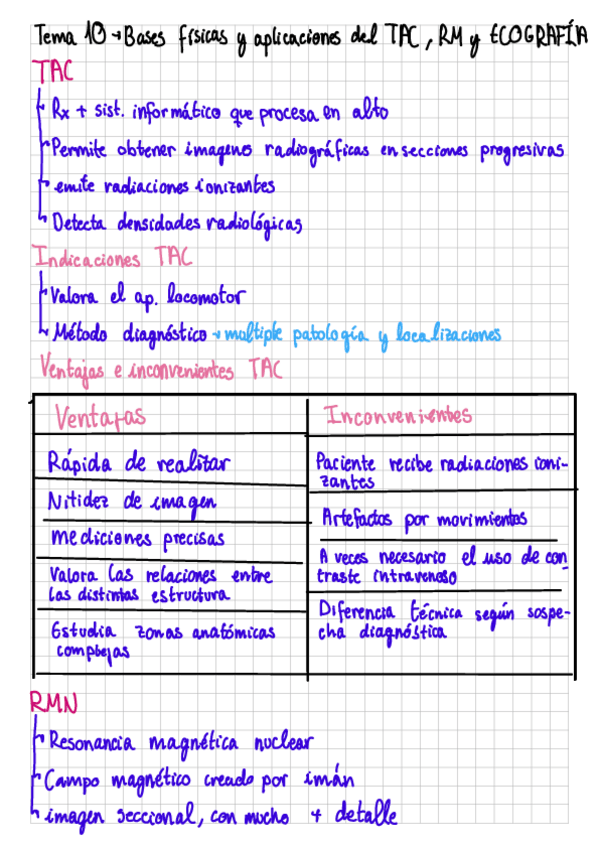 Tema 10 → Bases físicas y aplicaciones del TAC, RM y ECOGRAFÍA
TAC
Rx + sist. informático que procesa en alto
Permite obtener imagenes radiográficas en secciones progresivas
emite radiaciones ionizantes
Detecta densidades radiológicas
Indicaciones TAC
Valora el ap. locomotor
Método diagnóstico → multiple patología y localizaciones
Ventajas e inconvenientes TAC
Ventajas
Rápida de realizar
Nitidez de imagen
mediciones precisas
Valora las relaciones entre
las distintas estructura
Estudia zonas anatómicas
complejas
Inconvenientes
Paciente recibe radiaciones ioni-
zantes
Artefactos por movimientos
A veces necesario el uso de con-
traste intravenoso
Diferencia técnica según sospe-
cha diagnóstica
RMN
Resonancia magnética nuclear
Campo magnético creado por imán
imagen seccional, con mucho + detalle